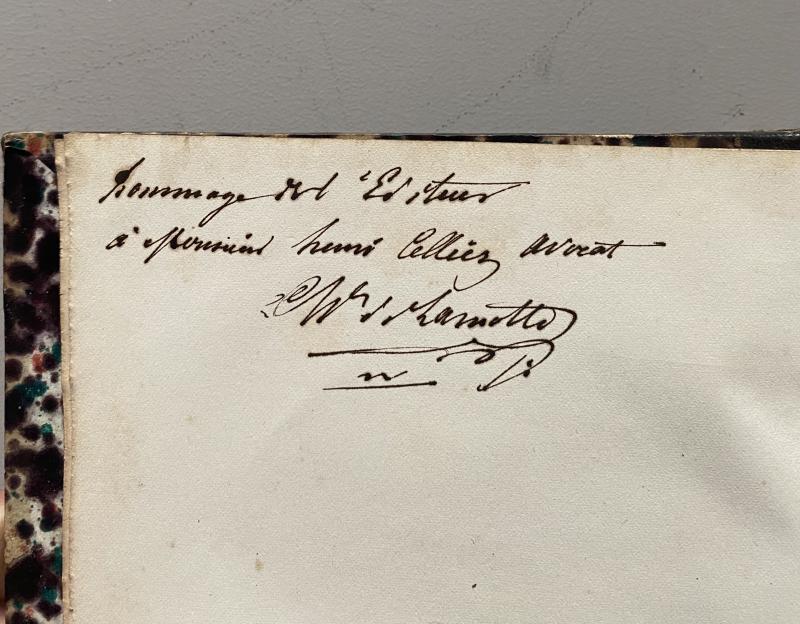 hommage de l'Editeur
à Monsieur henri Celliez avocat
de Lamotte